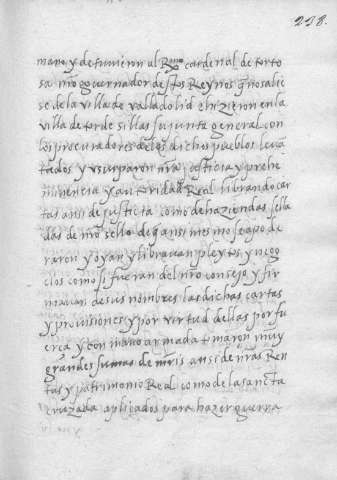 218.
mano y detuvieron al R^mo cardenal de torto
sa nr̃o governador destos Reynos q̃ no salie
se de la villa de valladolid e hizieron en la
villa de tordesillas su junta general con
los procuradores de los dichos pueblos levã
tados y usurparon nr̃a justicia y prehe
minencia y autoridad Real librando car
tas ansi de justicia como de haziendas sella
das de nr̃o sello de q̃ ansi mismo se apode
raron y oyan y libravan pleytos y nego
cios como si fueran del nr̃o consejo y fir
mavan de sus nõbres las dichas cartas
y provisiones y por virtud dellas por fu
erça y con mano armada tomaron muy
grandes sumas de mr̃s ansi de nr̃as Ren
tas y patrimonio Real como de la sancta
cruzada aplicados para hazer guerra